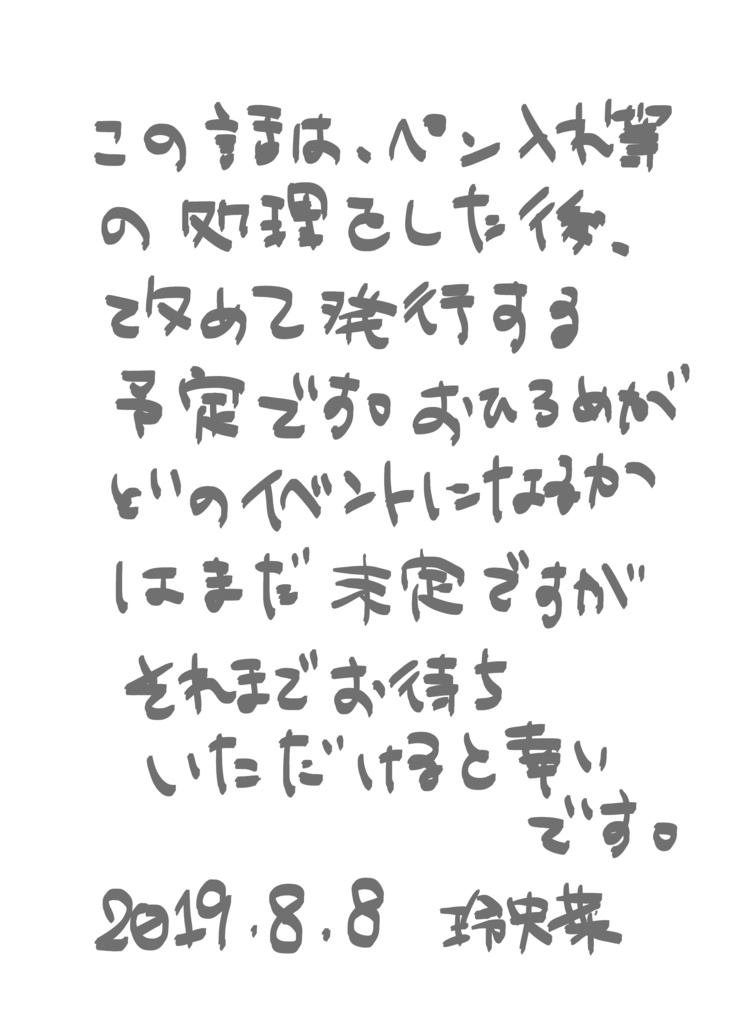 この話は、ペン入れ等
の処理をした後、
改めて発行する
予定です。おひろめが
どのイベントになるか
はまだ未定ですが
それまでお待ち
いただけると幸い
です。
2019.8.8 玲央菜